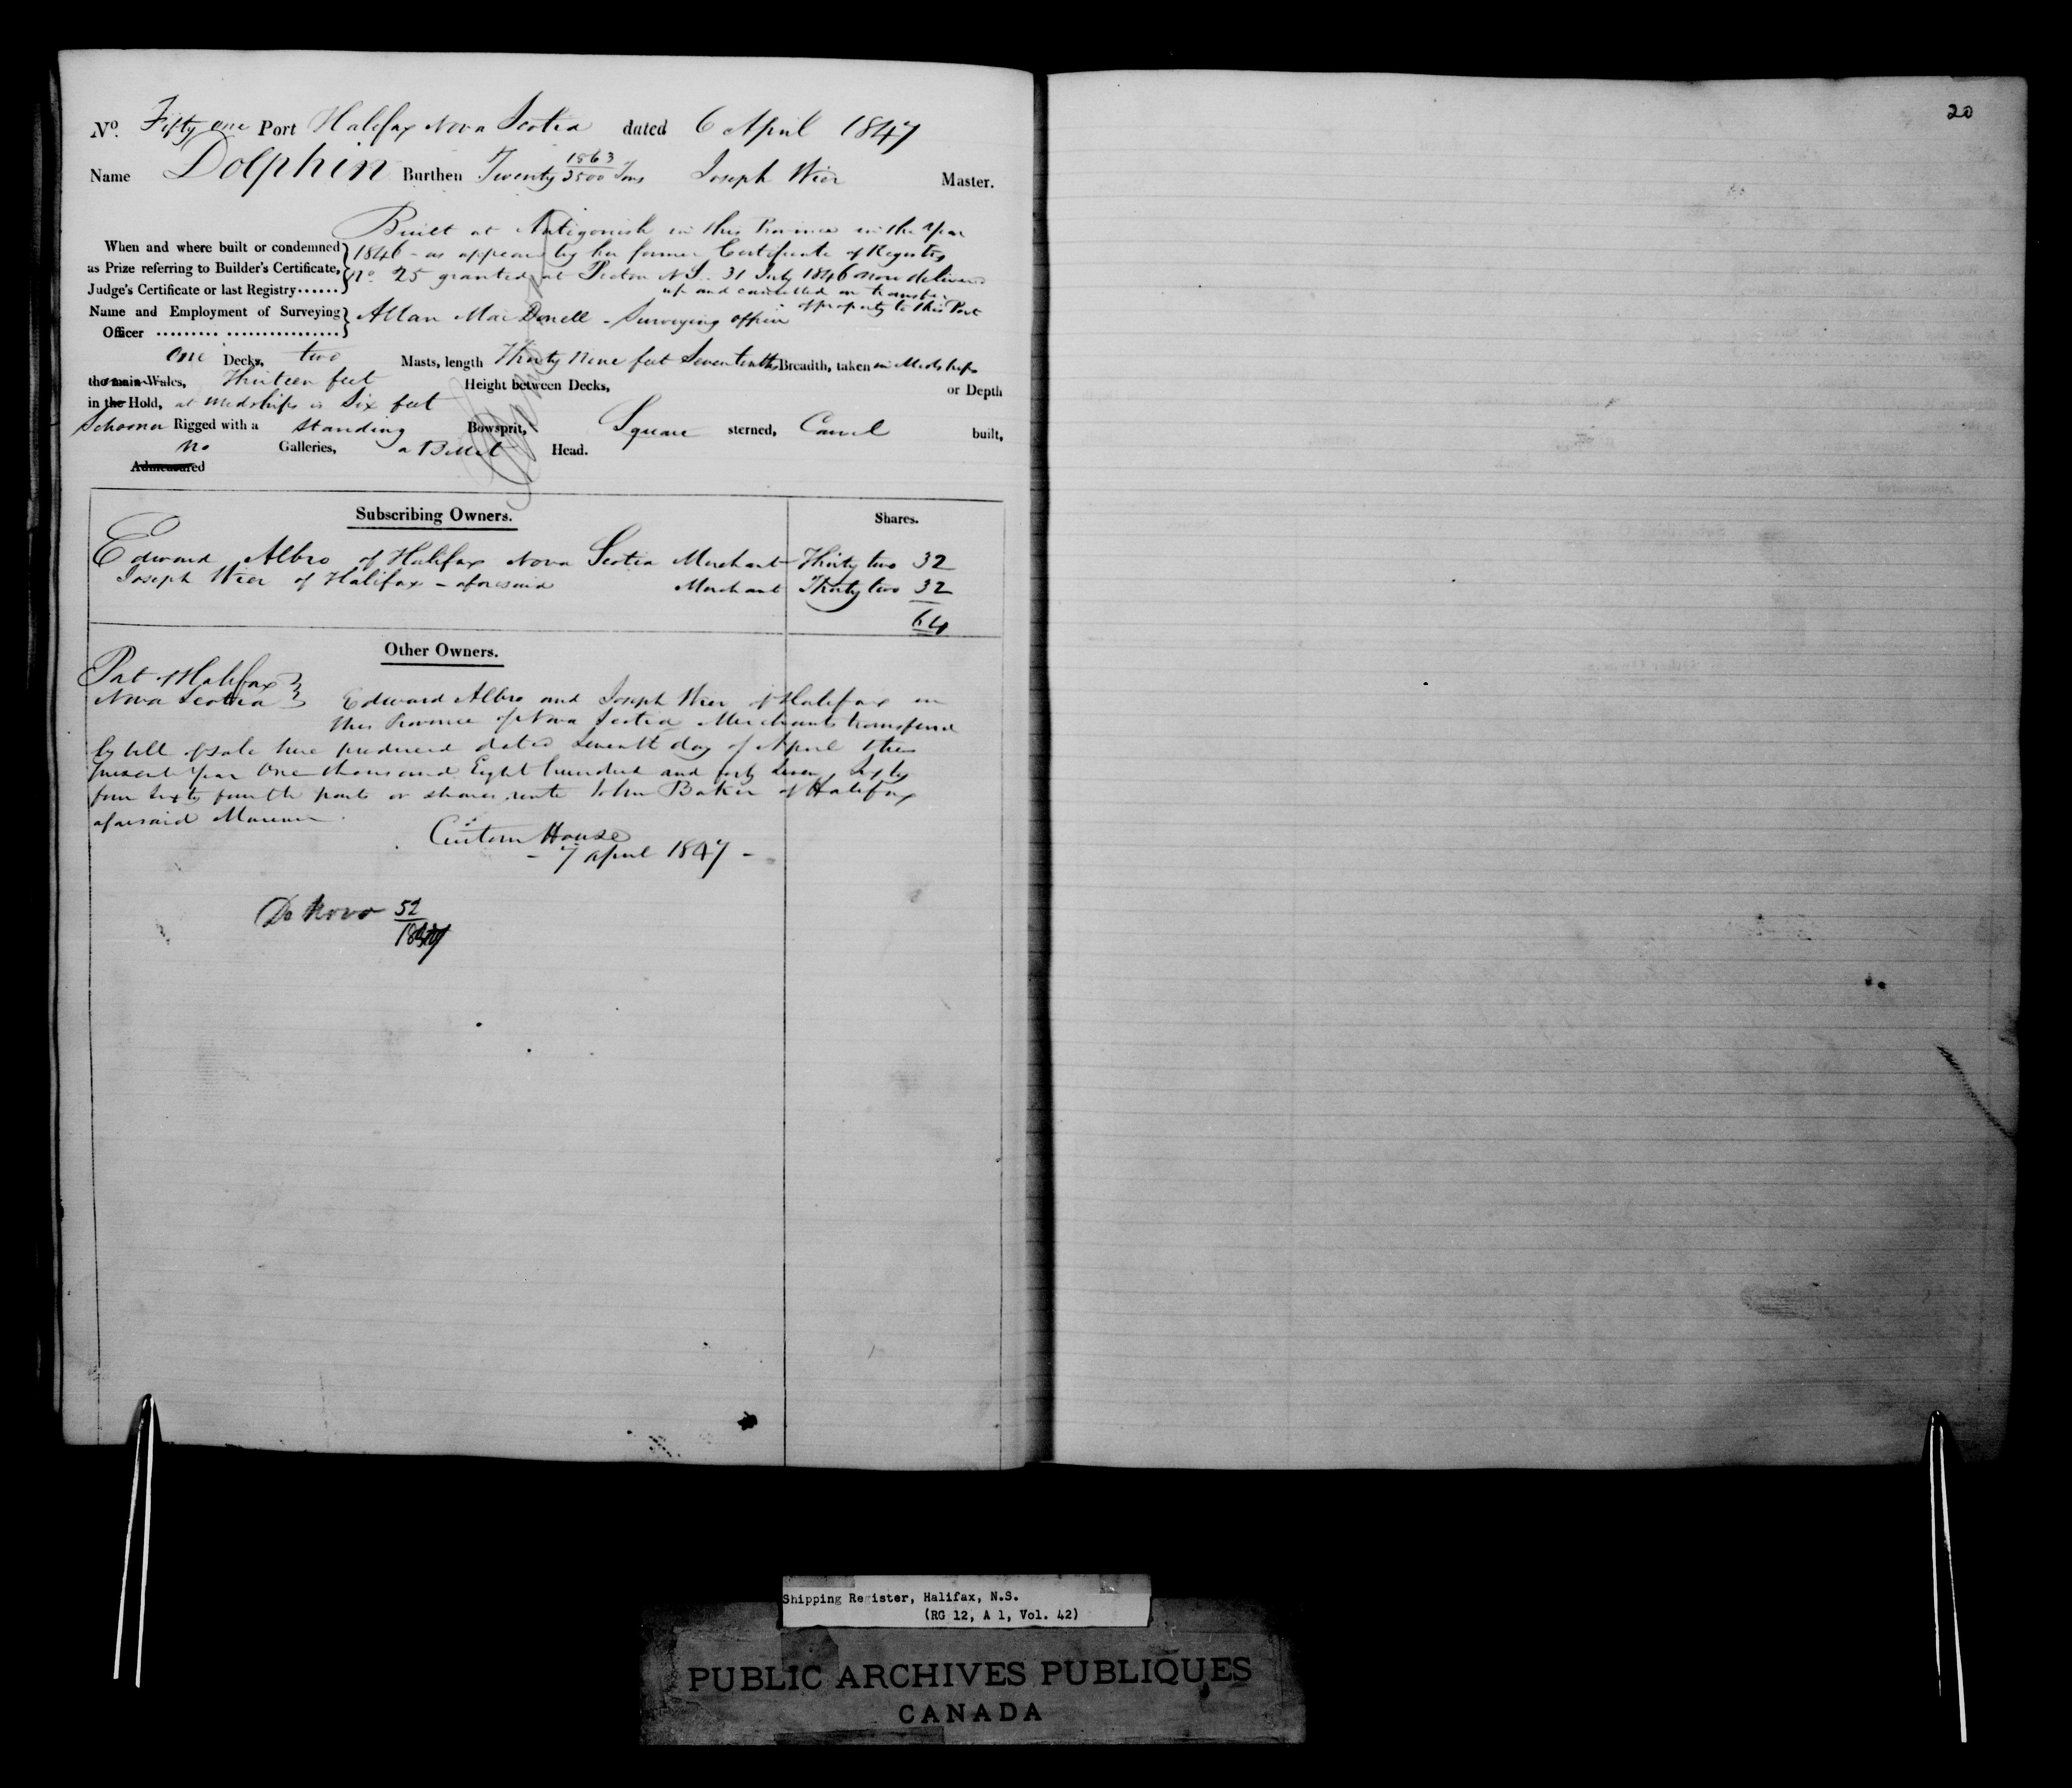 No. Fifty one Port Halifax Nova Scotia dated 6 April 1847
Name Dolphin Burthen Twenty 1863/3500 Tons Joseph Wier Master.
Built at Antigonish in this Province in the Year
When and where built or condemned
1846 - as appears by her former Certificate of Registry
as Prize referring to Builder's Certificate,
No. 25 granted at Pictou N.S. 31 July 1846 now delivered
Judge's Certificate or last Registry......
up and cancelled on transfer
of property to this Port
Name and Employment of Surveying
Officer
Allan MacDonell - Surveying officer
One Decks, two Masts, length Thirty Nine feet Seven tenths Breadth, taken in Midships
the main Wales, Thirteen feet Height between Decks, or Depth
in the Hold, at Midships is Six feet
Schooner Rigged with a Standing Bowsprit, Square sterned, Carvel built,
No Galleries, a Billet Head.
Admeasured
Subscribing Owners. Shares.
Edward Albro of Halifax Nova Scotia Merchant Thirty two 32
Joseph Wier of Halifax - aforesaid Merchant Thirty two 32
64
Other Owners.
Port of Halifax
Nova Scotia Edward Albro and Joseph Wier of Halifax in
this Province of Nova Scotia Merchants transferred
by bill of sale here produced dated Seventh day of April this
present Year One thousand Eight hundred and forty Seven, Sixty
four Sixty fourth parts or shares unto John Baker of Halifax
aforesaid Mariner.
Custom House
- 7 April 1847 -
De Novo 52/1847
20
Shipping Register, Halifax, N.S.
(RG 12, A 1, Vol. 42)
PUBLIC ARCHIVES PUBLIQUES
CANADA